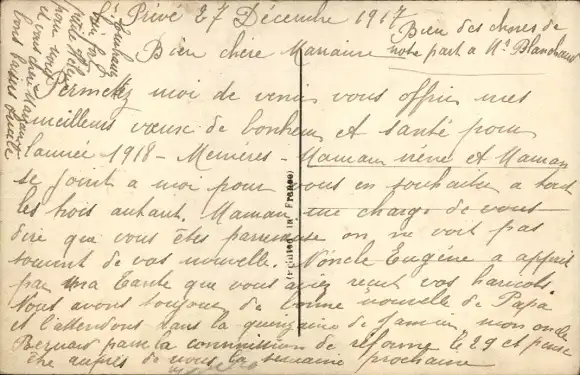 St Privé 27 Décembre 1917
Bien des choses de
notre part à Me Blanchard
Bien chère Marraine
Permetez moi de venir vous offrir mes
meilleurs vœux de bonheur et santé pour
l'année 1918 - Memères - Maman et Maman
se joint a moi pour vous en souhaiter a tout
les trois autant. Maman me charge de vous
dire que vous êtes parresseuse on ne voit pas
souvent de vos nouvelle. Noncle Eugène a appris
par ma Tante que vous aviez reçut vos haricots.
Nous avons toujours de bonne nouvelle de Papa
et l'attendons dans la quinzaine de Janvier, mon oncle
Bernard passe la commission de réforme le 29 et pense
être auprès de nous la semaine prochaine
(Printed in France)